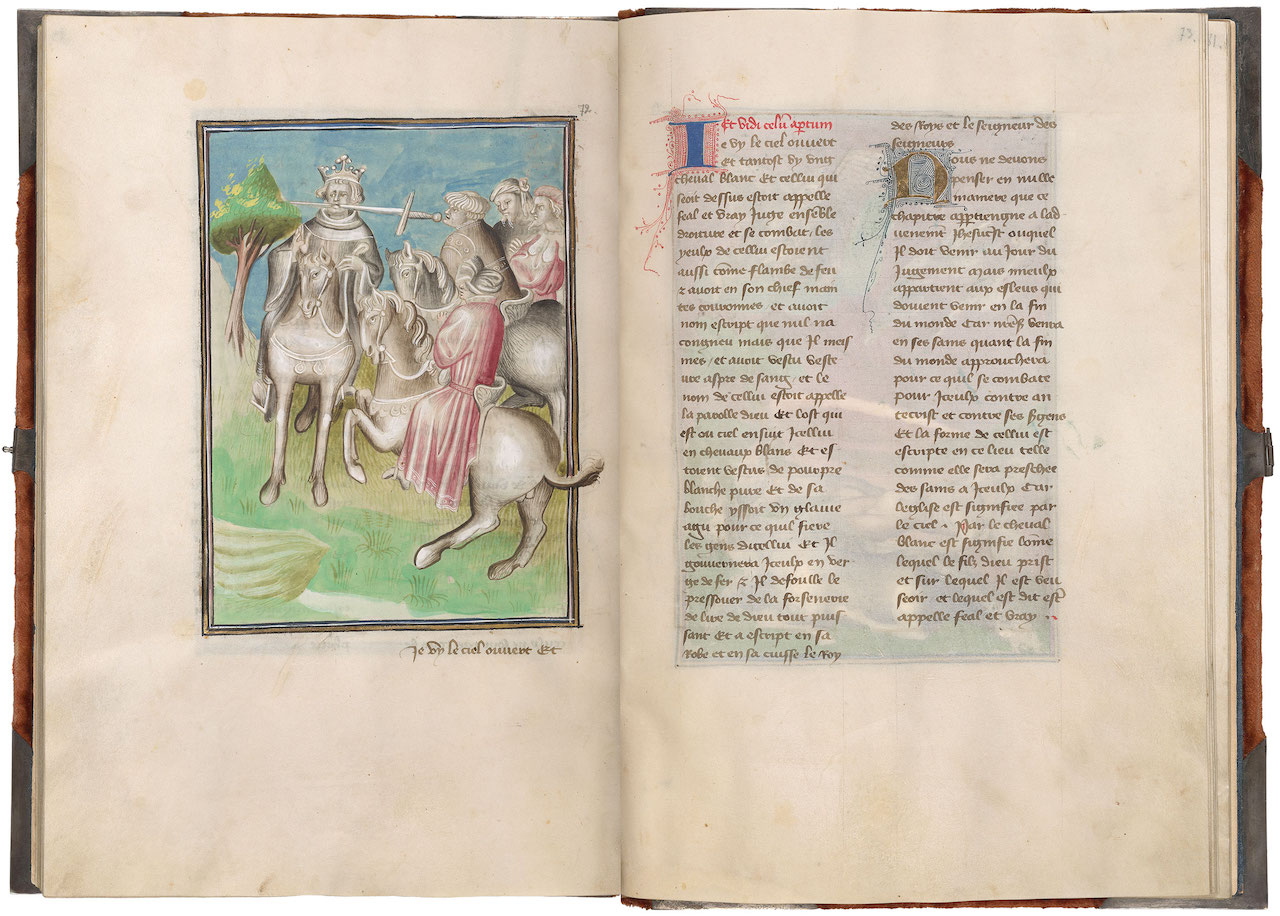 72.
Je vy le ciel ouvert Et
73.
Et vidi celu apertum
Ie vy le ciel ouvert
Et tantost vy ung
cheval blanc Et cellui qui
seoit dessus estoit appelle
feal et vray Juge ensemble
droiture et se combat, les
yeulx de cellui estoient
aussi come flambe de feu
z avoit en son chief main
tes couronnes et avoit
nom escript que nul na
congneu mais que Il meis
mes / et avoit vestu veste
ure aspre de sang / et le
nom de cellui estoit appelle
la parolle dieu Et lost qui
est ou ciel ensuit Icellui
en chevaux blans Et es
toient vestus de pourpre
blanche pure Et de sa
bouche yssoit un glaive
agu pour ce quil fiere
les gens dicellui Et Il
gouvernera Iceulx en ver
ge de fer z Il defoulle le
pressouer de la forsenerie
de lire de dieu tout puis
sant Et a escript en sa
Robe et en sa cuisse le Roy
des Roys et le seigneur des
seigneurs
Nous ne devons
penser en nulle
maniere que ce
chapitre appertiengne a lad
venement Jhesucst ouquel
Il doit venir au Jour du
Jugement Mais mieulx
appartient aux esleus qui
doivent venir en la fin
du monde Car vendra
en ses sains quant la fin
du monde approuchera
pour ce quil se combate
pour Iceulx contre an
tecrist et contre ses sergens
Et la forme de cellui est
escripte en ce lieu telle
comme elle sera preschee
des sains a Iceulx Car
leglise est signifiee par
le ciel . Par le cheval
blanc est signifie lome
lequel le filz dieu prist
et sur lequel Il est veu
seoir et lequel est dit estre
appelle feal et vray